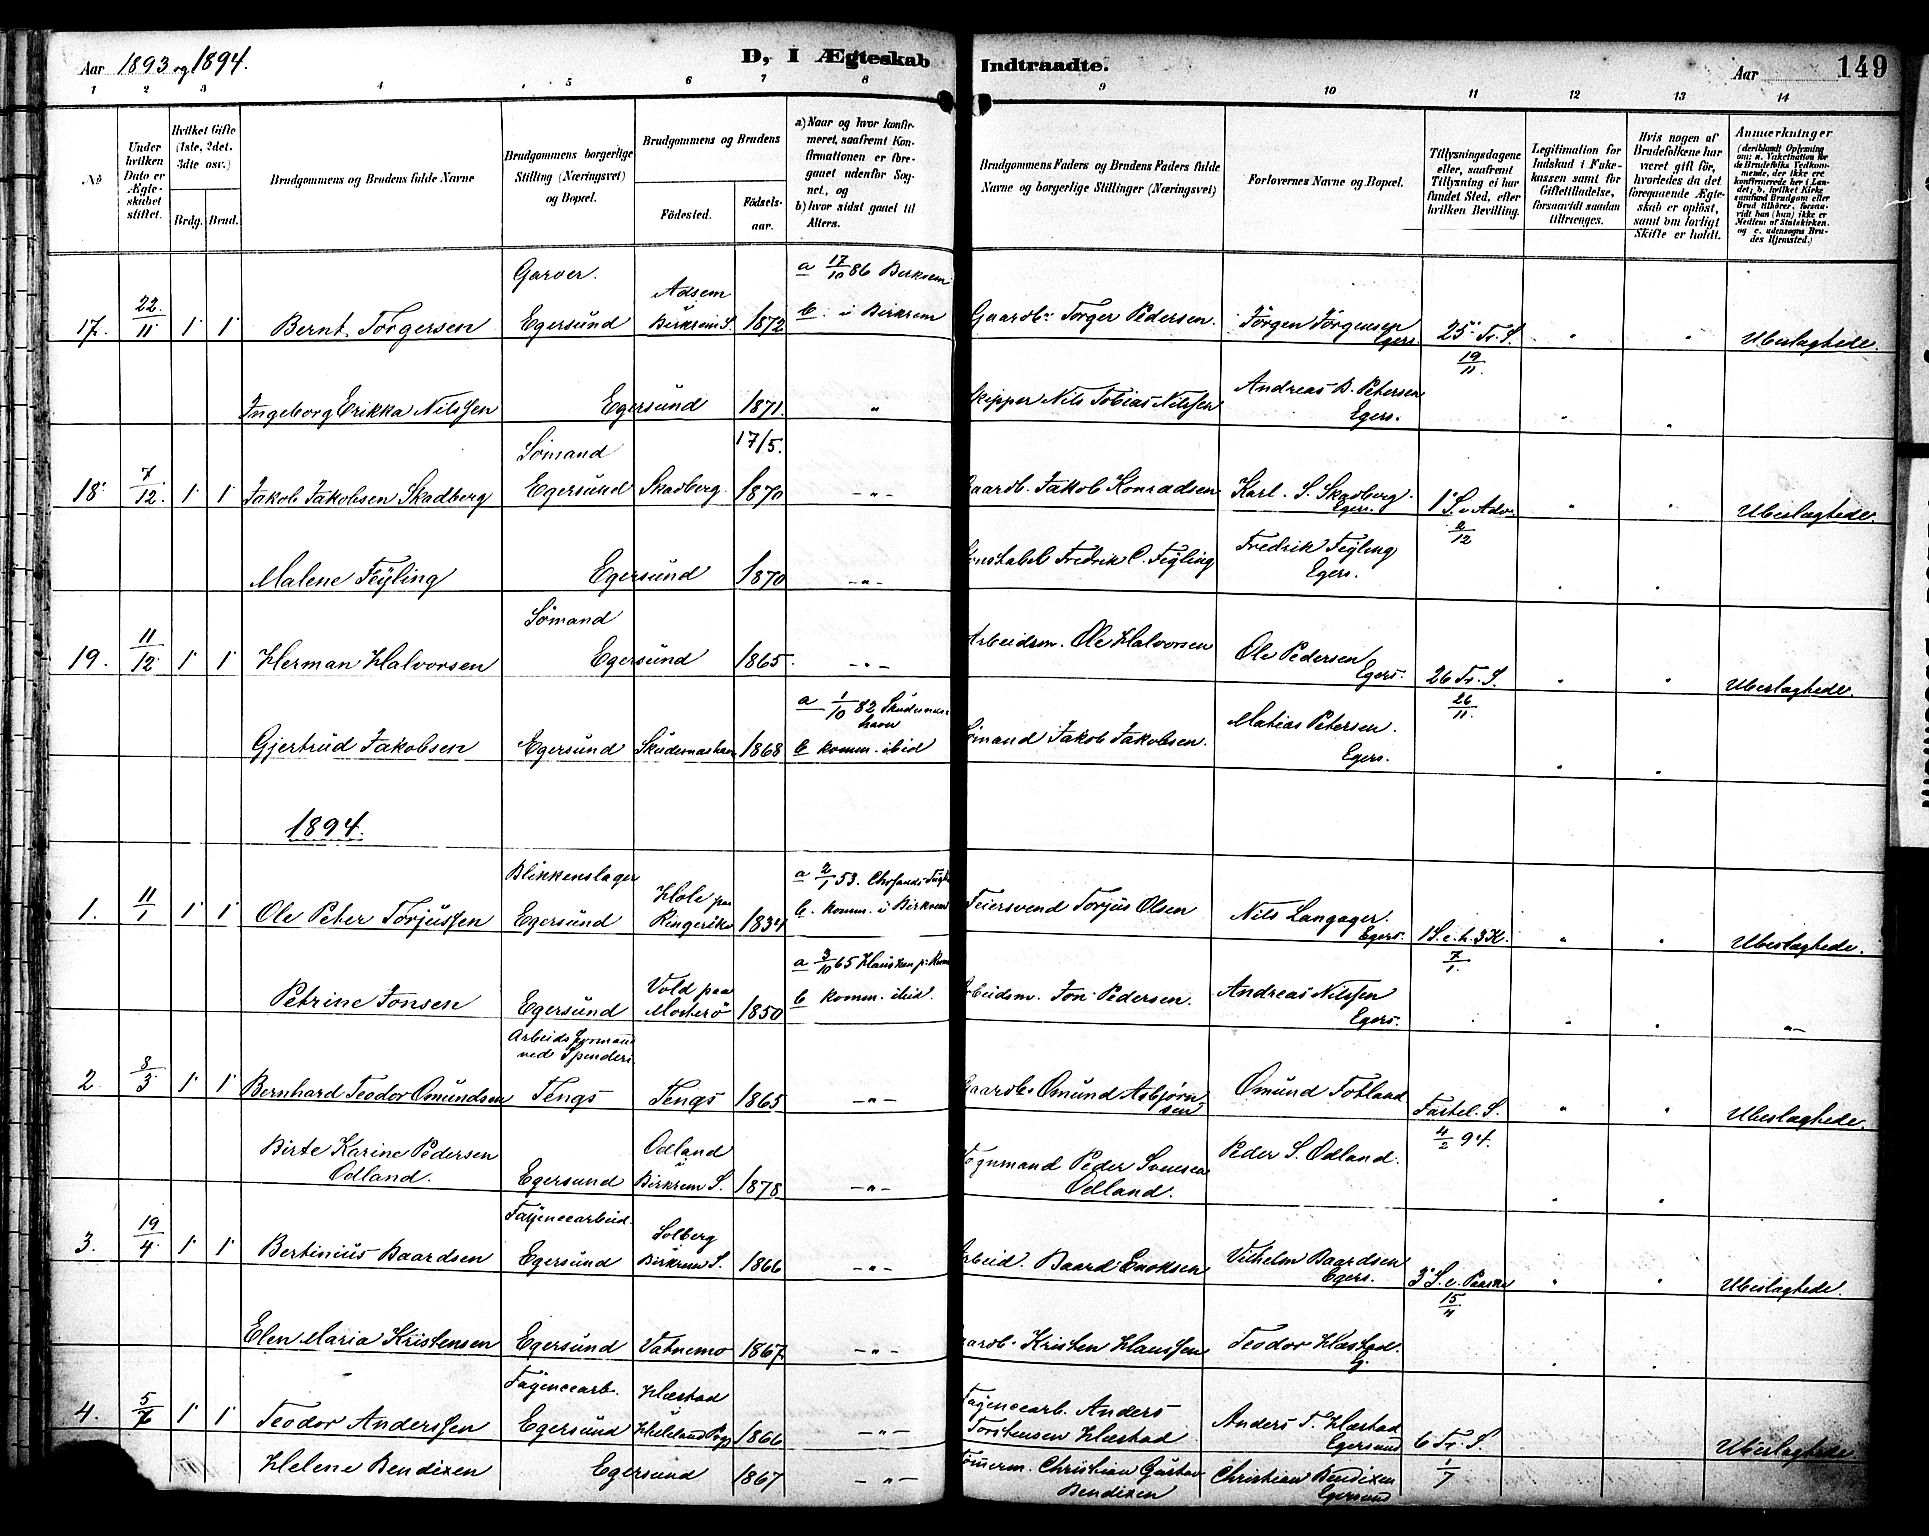 Aar 1893 og 1894.
D, I Ægteskab Indtraadte.
Aar
149
1 2 3 4 5 6 7 8 9 10 11 12 13 14
No
Under hvilken Dato er Ægteskabet stiftet.
Hvilket Gifte (1ste, 2det, 3dte osv.)
Brdg. Brud.
Brudgommens og Brudens fulde Navne
Brudgommens borgerlige Stilling (Næringsvei) og Bopæl.
Brudgommens og Brudens
Fødested. Fødselsaar.
a) Naar og hvor konfirmeret, saafremt Konfirmationen er foregaaet udenfor Sognet, og
b) hvor sidst gaaet til Alters.
Brudgommens Faders og Brudens Faders fulde Navne og borgerlige Stillinger (Næringsvei)
Forlovernes Navne og Bopæl.
Tillysningsdagene eller, saafremt Tillysning ei har fundet Sted, efter hvilken Bevilling.
Legitimation for Indskud i Enkekassen samt for Giftetilladelse, forsaavidt saadan tiltrænges.
Hvis nogen af Brudefolkene har været gift før, hvorledes da det foregaaende Ægteskab er opløst, samt om lovligt Skifte er holdt.
Anmærkninger (deriblandt Oplysning om: a. Vakcination for de Brudefolks Vedkommende, der ikke ere konfirmerede her i Landet; b. hvilket Kirkesamfund Brudgom eller Brud tilhører, forsaavidt han (hun) ikke er Medlem af Statskirken, og c. udensogns Brudes Hjemsted.)
17. 22/11 1 1 Bernt Torgersen Garver. Egersund Adsem Birkrem S. 1872 a 17/10 86 Birkrem b i Birkrem Gaardbr. Torger Pedersen. Jörgen Jörgensen Egers. 25 Tr. S. 19/11 " " Ubeslægtede.
Ingeborg Erikka Nilssen Egersund 1871. " Skipper Nils Tobias Nilssen Andreas B. Petersen Egers. " "
18 7/12. 1 1 Jakob Jakobsen Skadberg Sømand Egersund Skadberg. 17/5. 1870 -"- Gaardb. Jakob Konradsen Karl. S. Skadberg. Egers. 1 S. i Adv. 2/12 " " Ubeslægtede.
Malene Feyling Egersund 1870 -"- Konstabel Fredrik C. Feyling Fredrik Feyling Egers. " "
19. 11/12 1 1 Herman Halvorsen Sømand Egersund 1865. -"- Arbeidsm. Ole Halvorsen Ole Pedersen Egers. 26 Tr. S. 26/11 " " Ubeslægtede.
Gjertrud Jakobsen Egersund Skudesneshavn 1868 a 1/10 82 Skudesneshavn b komm. ibid Sømand Jakob Jakobsen. Matias Petersen. Egers. " "
1894.
1. 11/1 1 1 Ole Peter Torjussen Blikkenslager Egersund Hole paa Ringerike 1834 a 2/1 53. b. komm. i Birkrem Feiersvend Torjus Olsen Nils Langager. Egers. 1 S. e. h. 3 K. 7/1. " " Ubeslægtede.
Petrine Jonsen Egersund Vold paa Mosterö 1850 a 3/10 65 b komm. ibid. Arbeidsm. Jon Pedersen. Andreas Nilssen Egers. " " "-
2. 8/3 1 1 Bernhard Teodor Omundsen Arbeidsformand ved Tengs Tengs 1865 -"- Gaardbr. Omund Asbjørnsen Omund Totland Fastel. S. 4/2 94. " " Ubeslægtede.
Birte Karine Pedersen Odland. Egersund Odland Birkrem S. 1878 -"- Peder Svensen Odland. Peder S. Odland. " "
3. 19/4 1 1 Bertinius Baardsen Fayencearbeid. Egersund Solberg Birkrem S. 1866 -"- Arbeid. Baard Enoksen Vilhelm Baardsen Egers. 3 S. e. Paaske 15/4 " " Ubeslægtede.
Elen Maria Kristensen Egersund Vatnemo 1867. -"- Gaardb. Kristen Klaussen Teodor Hæstad. E. " "
4. 5/7 1 1 Teodor Anderssen Fayencearb. Egersund Hæstad Heleland Prgj 1866 -"- Fayencearb. Anders Torstensen Hæstad Anders T. Hæstad Egersund 6 Tr. S. 1/7 Ubeslægtede.
Helene Bendixen Egersund 1867 -"- Tømerm. Christian Gustav Bendixen Christian Bendixen Egersund